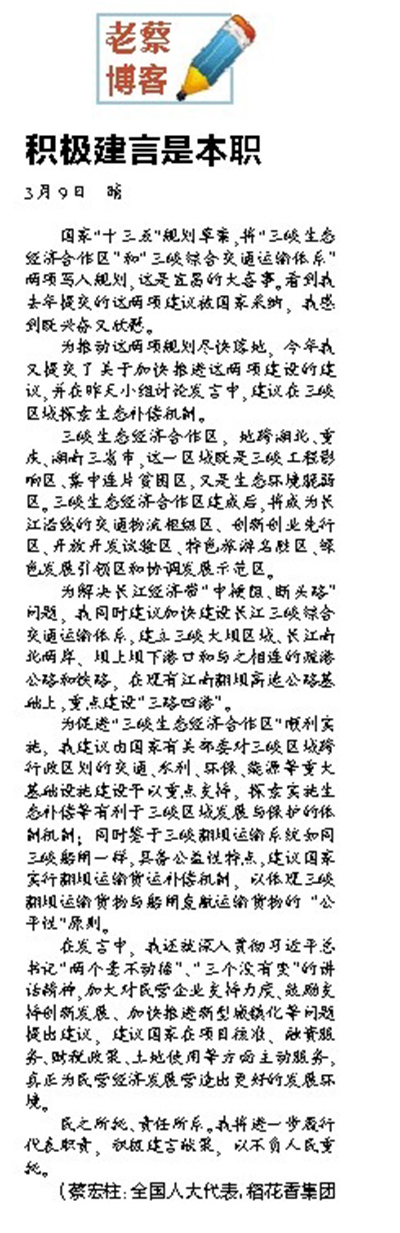 老蔡
博客
积极建言是本职
3月9日 晴
国家“十三五”规划草案,将“三峡生态
经济合作区”和“三峡综合交通运输体系”
两项写入规划,这是宜昌的大喜事。看到我
去年提交的这两项建议被国家采纳，我感
到既兴奋又欣慰。
为推动这两项规划尽快落地，今年我
又提交了关于加快推进这两项建设的建
议,并在昨天小组讨论发言中,建议在三峡
区域探索生态补偿机制。
三峡生态经济合作区，地跨湖北、重
庆、湖南三省市,这一区域既是三峡工程影
响区、集中连片贫困区,又是生态环境脆弱
区。三峡生态经济合作区建成后,将成为长
江沿线的交通物流枢纽区、创新创业先行
区、开放开发试验区、特色旅游名胜区、绿
色发展引领区和协调发展示范区。
为解决长江经济带“中梗阻、断头路”
问题，我同时建议加快建设长江三峡综合
交通运输体系,建立三峡大坝区域、长江南
北两岸、坝上坝下港口和与之相连的疏港
公路和铁路，在现有江南翻坝高速公路基
础上,重点建设“三路四港”。
为促进“三峡生态经济合作区”顺利实
施，我建议由国家有关部委对三峡区域跨
行政区划的交通、水利、环保、能源等重大
基础设施建设予以重点支持，探索实施生
态补偿等有利于三峡区域发展与保护的体
制机制；同时鉴于三峡翻坝运输系统如同
三峡船闸一样,具备公益性特点,建议国家
实行翻坝运输货运补偿机制，以体现三峡
翻坝运输货物与船闸直航运输货物的“公
平性”原则。
在发言中，我还就深入贯彻习近平总
书记“两个毫不动摇”、“三个没有变”的讲
话精神,加大对民营企业支持力度、鼓励支
持创新发展、加快推进新型城镇化等问题
提出建议，建议国家在项目核准、融资服
务、财税政策、土地使用等方面主动服务,
真正为民营经济发展营造出更好的发展环
境。
民之所托、责任所系。我将进一步履行
代表职责，积极建言献策，以不负人民重
托。
(蔡宏柱:全国人大代表,稻花香集团